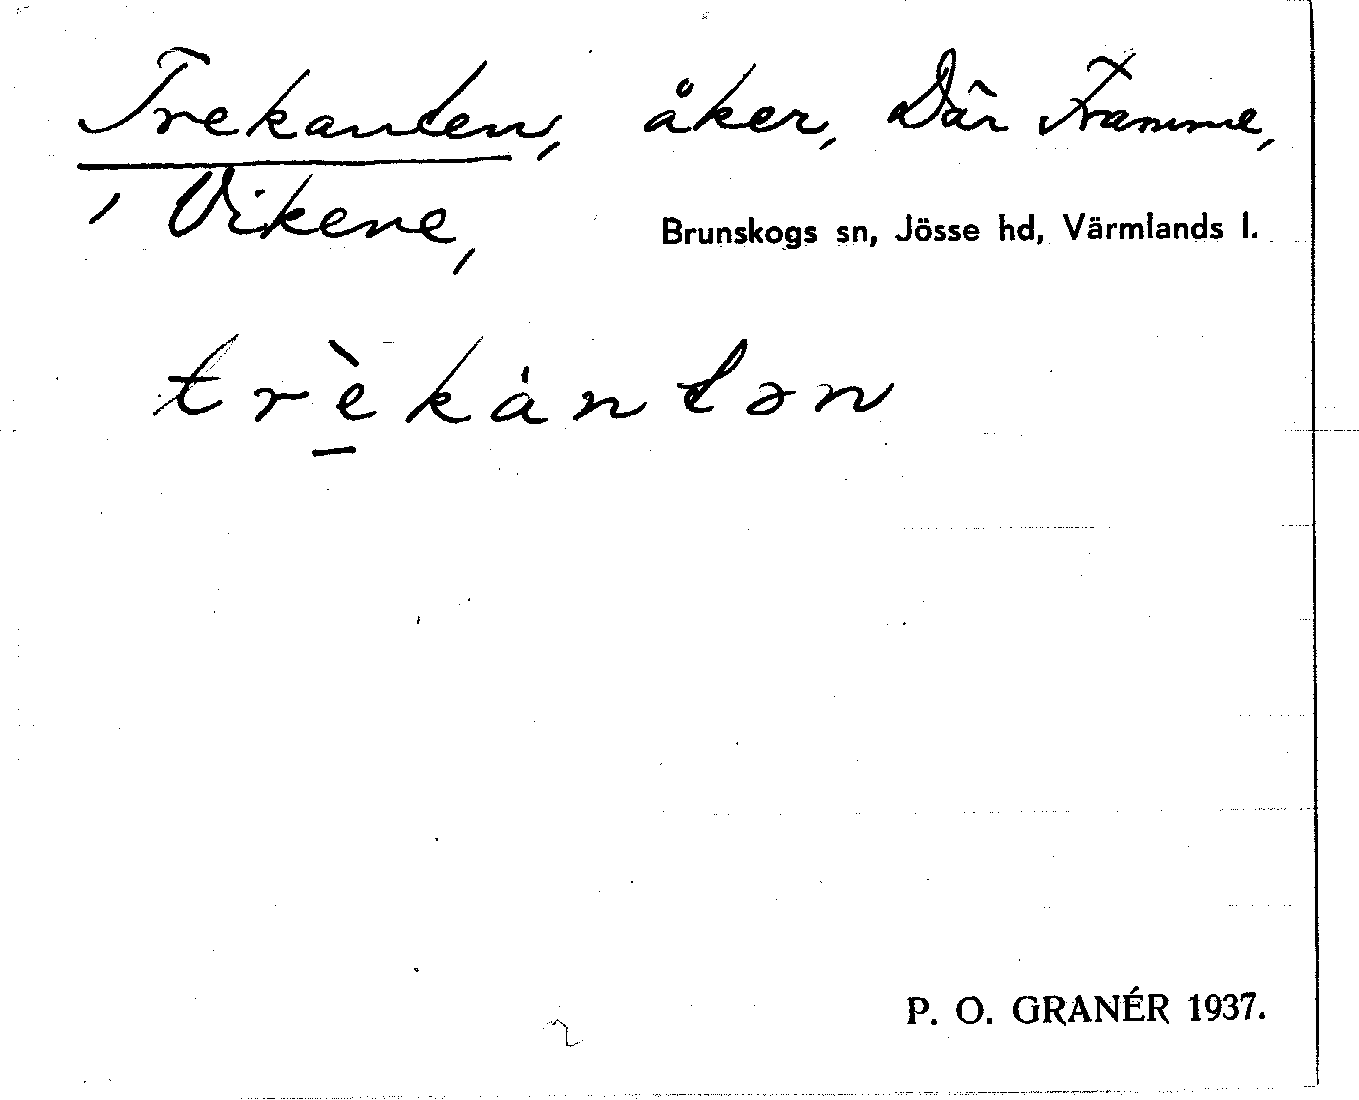 Trekanten, åker, Där Framme,
i Vikene,
Brunskogs sn, Jösse hd, Värmlands l.
trèkántən
P. O. GRANÉR 1937.